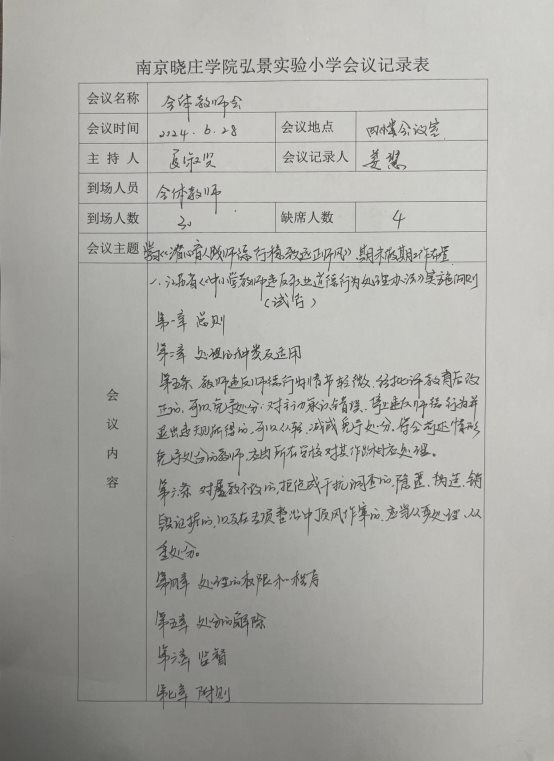 南京晓庄学院弘景实验小学会议记录表
会议名称 全体教师会
会议时间 2024.6.28 会议地点 四楼会议室
主持人 会议记录人 姜慧
到场人员 全体教师
到场人数 30 缺席人数 4
会议主题 《潜心育人践师德 行稳致远正师风》、期末假期工作布置
会议内容
一.江苏省《中小学教师违反职业道德行为处理办法》实施细则
(试行)
第一章 总则
第二章 处理的种类及适用
第五条 教师违反师德行为情节轻微、经批评教育后改
正的,可以免予处分;对主动承认错误、停止违反师德行为并
退出违规所得的,可以从轻、减或免予处分。符合上述情形
免予处分的教师,应由所在学校对其作出相应处理。
第六条 对屡教不改的,拒绝或干扰调查的,隐匿、伪造、销
毁证据的,以及在专项整治中顶风作案的,应当从严处理、从
重处分。
第四章 处理的权限和程序
第五章 处分的解除
第六章 监督
第七章 附则